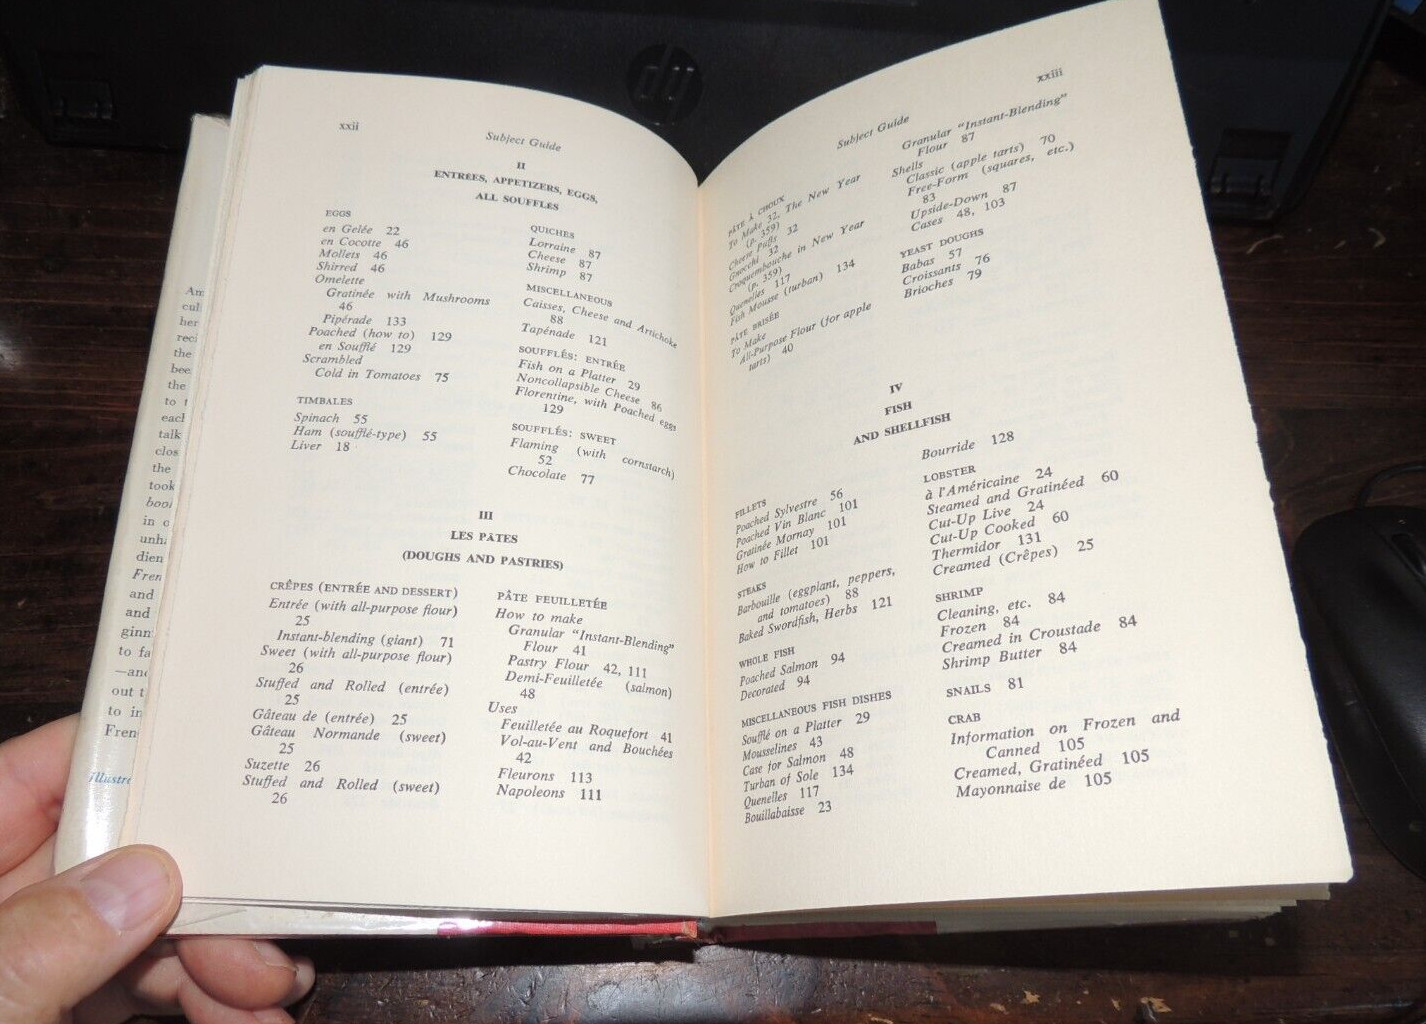 hp
Am
cul
her
reci
the
bee
the
to t
each
talk
clos
the
took
book
in o
unh
dien
Fren
and
and
ginn
to fa
—and
out t
to in
Fren
Illustra
xxii
Subject Guide
II
ENTRÉES, APPETIZERS, EGGS,
ALL SOUFFLÉS
EGGS
en Gelée 22
en Cocotte 46
Mollets 46
Shirred 46
Omelette
Gratinée with Mushrooms
46
Pipérade 133
Poached (how to) 129
en Soufflé 129
Scrambled
Cold in Tomatoes 75
TIMBALES
Spinach 55
Ham (soufflé-type) 55
Liver 18
QUICHES
Lorraine 87
Cheese 87
Shrimp 87
MISCELLANEOUS
Caisses, Cheese and Artichoke
88
Tapénade 121
SOUFFLÉS: ENTRÉE
Fish on a Platter 29
Noncollapsible Cheese 86
Florentine, with Poached eggs
129
SOUFFLÉS: SWEET
Flaming (with cornstarch)
52
Chocolate 77
III
LES PÂTES
(DOUGHS AND PASTRIES)
CRÊPES (ENTRÉE AND DESSERT)
Entrée (with all-purpose flour)
25
Instant-blending (giant) 71
Sweet (with all-purpose flour)
26
Stuffed and Rolled (entrée)
25
Gâteau de (entrée) 25
Gâteau Normande (sweet)
25
Suzette 26
Stuffed and Rolled (sweet)
26
PÂTE FEUILLETÉE
How to make
Granular "Instant-Blending"
Flour 41
Pastry Flour 42, 111
Demi-Feuilletée (salmon)
48
Uses
Feuilletée au Roquefort 41
Vol-au-Vent and Bouchées
42
Fleurons 113
Napoleons 111
xxiii
Subject Guide
PÂTE À CHOUX
To Make 32, The New Year
(p. 359)
Cheese Puffs 32
Gnocchi 32
Croquembouche in New Year
(p. 359)
Quenelles 117
Fish Mousse (turban) 134
PÂTE BRISÉE
To Make
All-Purpose Flour (for apple
tarts) 40
Granular "Instant-Blending"
Flour 87
Shells
Classic (apple tarts) 70
Free-Form (squares, etc.)
83
Upside-Down 87
Cases 48, 103
YEAST DOUGHS
Babas 57
Croissants 76
Brioches 79
IV
FISH
AND SHELLFISH
FILLETS
Poached Sylvestre 56
Poached Vin Blanc 101
Gratinée Mornay 101
How to Fillet 101
STEAKS
Barbouille (eggplant, peppers,
and tomatoes) 88
Baked Swordfish, Herbs 121
WHOLE FISH
Poached Salmon 94
Decorated 94
MISCELLANEOUS FISH DISHES
Soufflé on a Platter 29
Mousselines 43
Case for Salmon 48
Turban of Sole 134
Quenelles 117
Bouillabaisse 23
Bourride 128
LOBSTER
à l'Américaine 24
Steamed and Gratinéed 60
Cut-Up Live 24
Cut-Up Cooked 60
Thermidor 131
Creamed (Crêpes) 25
SHRIMP
Cleaning, etc. 84
Frozen 84
Creamed in Croustade 84
Shrimp Butter 84
SNAILS 81
CRAB
Information on Frozen and
Canned 105
Creamed, Gratinéed 105
Mayonnaise de 105